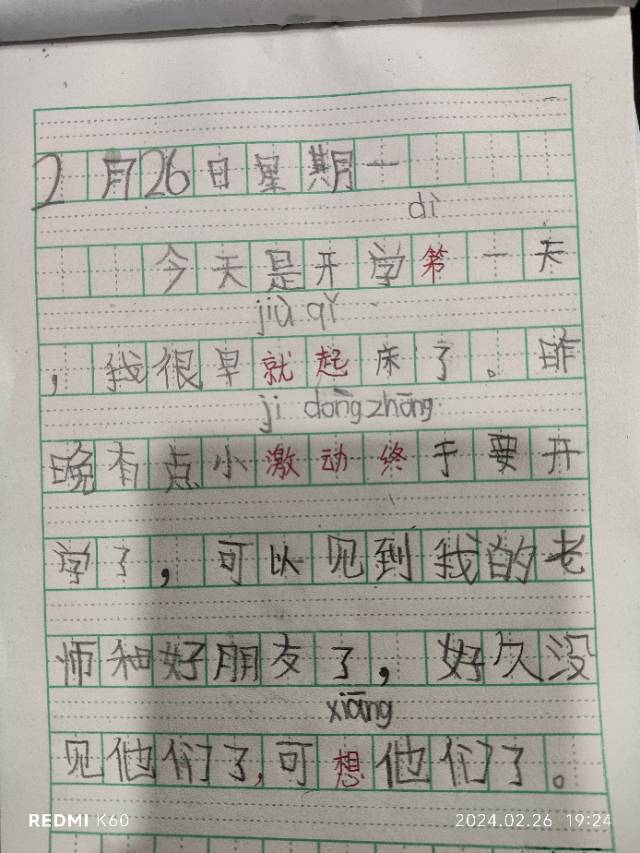 2月26日星期一
dì
今天是开学第一天
jiù qǐ
，我很早就起床了。昨
ji dòng zhōng
晚有点小激动终于要开
学了，可以见到我的老
师和好朋友了，好久没
xiāng
见他们了，可想他们了。
REDMI K60
2024.02.26 19:24